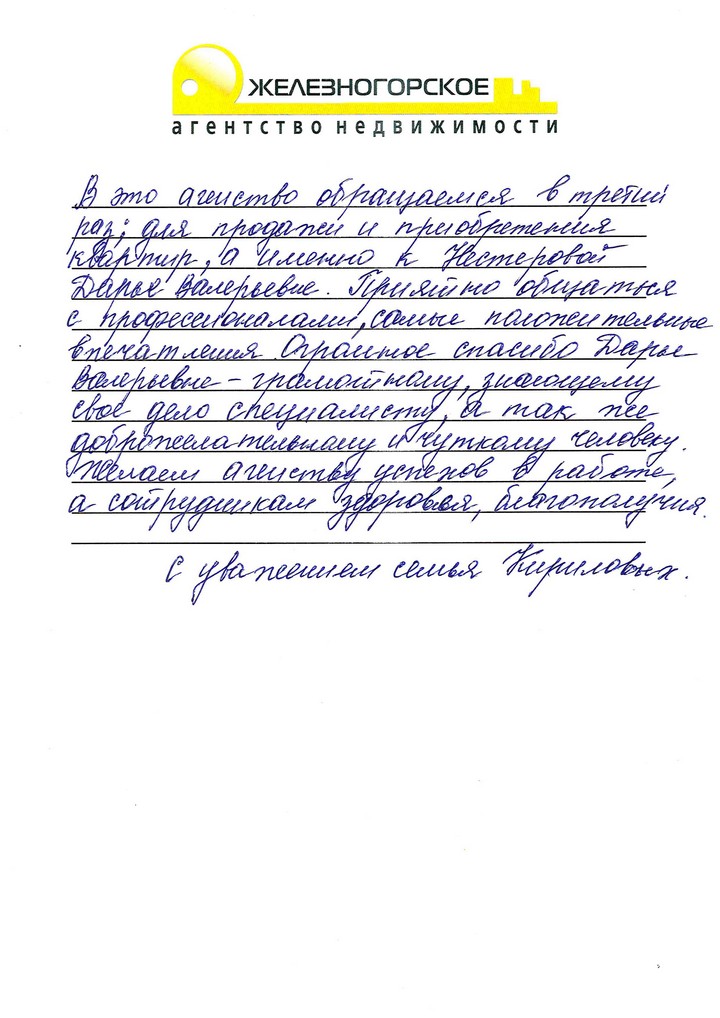 ЖЕЛЕЗНОГОРСКОЕ
агентство недвижимости
В это агенство обращаемся в третий
раз; для продажи и приобретения
квартир, а именно к Нестеровой
Дарье Валерьевне. Приятно общаться
с профессионалами, самые положительные
впечатления. Огромное спасибо Дарье
Валерьевне - грамотному, знающему
свое дело специалисту, а так же
доброжелательному и чуткому человеку.
Желаем агенству успехов в работе,
а сотрудникам здоровья, благополучия.
С уважением семья Кириловых.